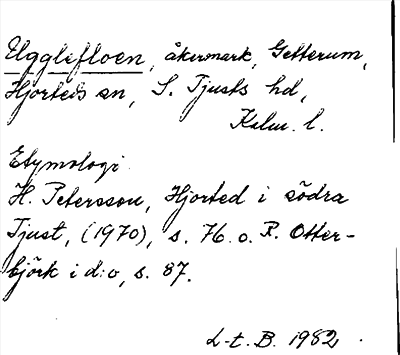 Ugglefloen, åkermark, Getterum,
Hjorteds sn, S. Tjusts hd,
Kalm. l.
Etymologi
H. Petersson, Hjorted i södra
Tjust, (1970), s. 76 o. R. Otter-
björk i d:o, s. 87.
L-t. B. 1982